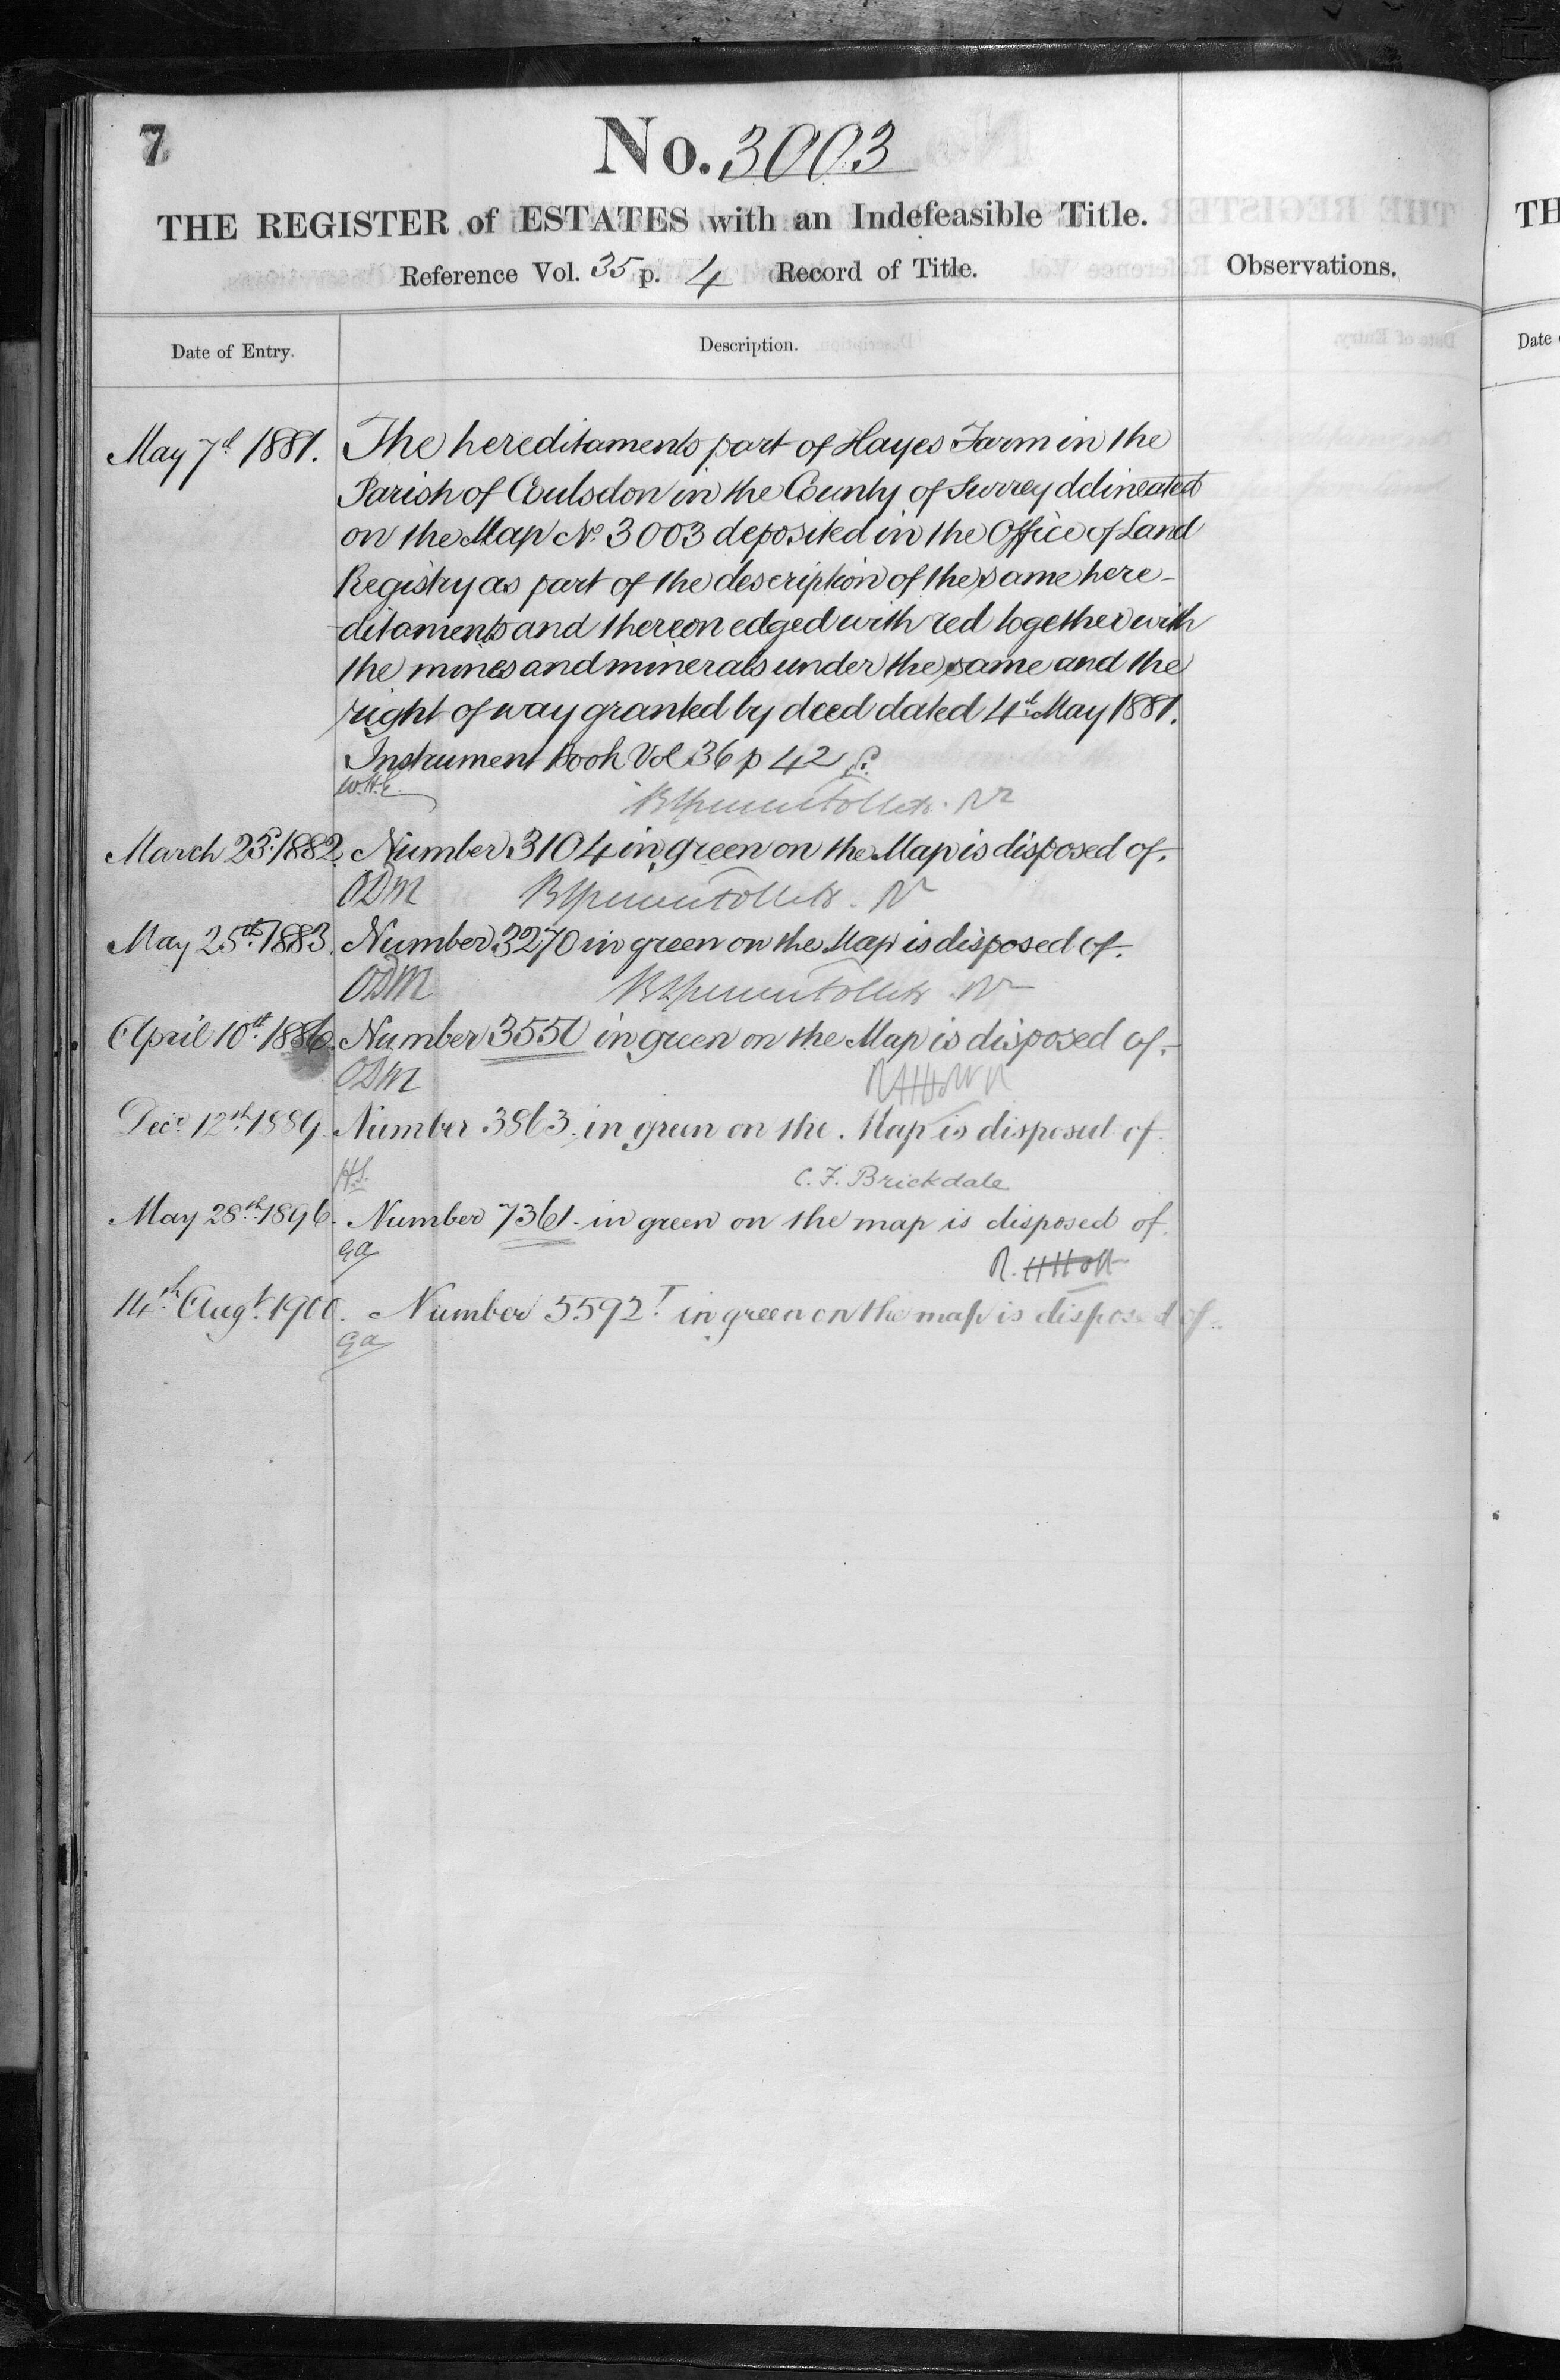 7
No. 3003
THE REGISTER of ESTATES with an Indefeasible Title.
Reference Vol. 35 p. 4 Record of Title.
Observations.
Date of Entry.
Description.
May 7th 1881. The hereditaments part of Hayes Farm in the
Parish of Coulsdon in the County of Surrey delineated
on the Map No. 3003 deposited in the Office of Land
Registry as part of the description of the same here-
ditaments and thereon edged with red together with
the mines and minerals under the same and the
right of way granted by deed dated 4th May 1881.
Instrument book Vol 36 p 42
March 23rd 1882. Number 3104 in green on the Map is disposed of.
ODM
May 25th 1883. Number 3270 in green on the Map is disposed of.
ODM
April 10th 1886. Number 3550 in green on the Map is disposed of.
ODM
Decr. 12th 1889. Number 3863 in green on the Map is disposed of.
H.S.
C. F. Brickdale
May 28th 1896. Number 7361 in green on the map is disposed of.
GA
R. H Holt
14th Augt. 1900. Number 5592T in green on the map is disposed of.
GA
TH
Date